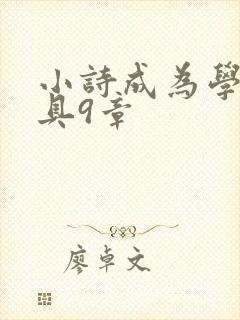 小詩成為學
具9章
廖卓文